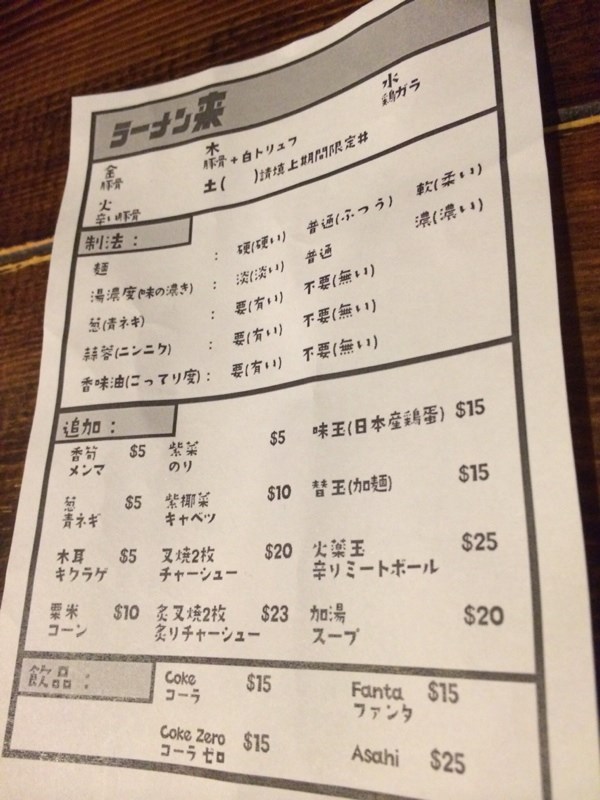 ラーメン来
金
豚骨
木
豚骨+白トリュフ
水
鶏ガラ
火
辛い豚骨
土( )請填上期間限定丼
制法:
麺 : 硬(硬い) 普通(ふつう) 軟(柔い)
湯濃度(味の濃き) : 淡(淡い) 普通 濃(濃い)
葱(青ネギ) : 要(有い) 不要(無い)
蒜蓉(ニンニク) : 要(有い) 不要(無い)
香味油(こってり度): 要(有い) 不要(無い)
追加:
香筍 $5
メンマ
紫菜 $5
のり
味玉(日本産鶏蛋) $15
葱 $5
青ネギ
紫椰菜 $10
キャベツ
替玉(加麺) $15
木耳 $5
キクラゲ
叉焼2枚 $20
チャーシュー
火薬玉 $25
辛りミートボール
粟米 $10
コーン
炙叉焼2枚 $23
炙りチャーシュー
加湯 $20
スープ
飲品:
Coke $15
コーラ
Fanta $15
ファンタ
Coke Zero $15
コーラ ゼロ
Asahi $25